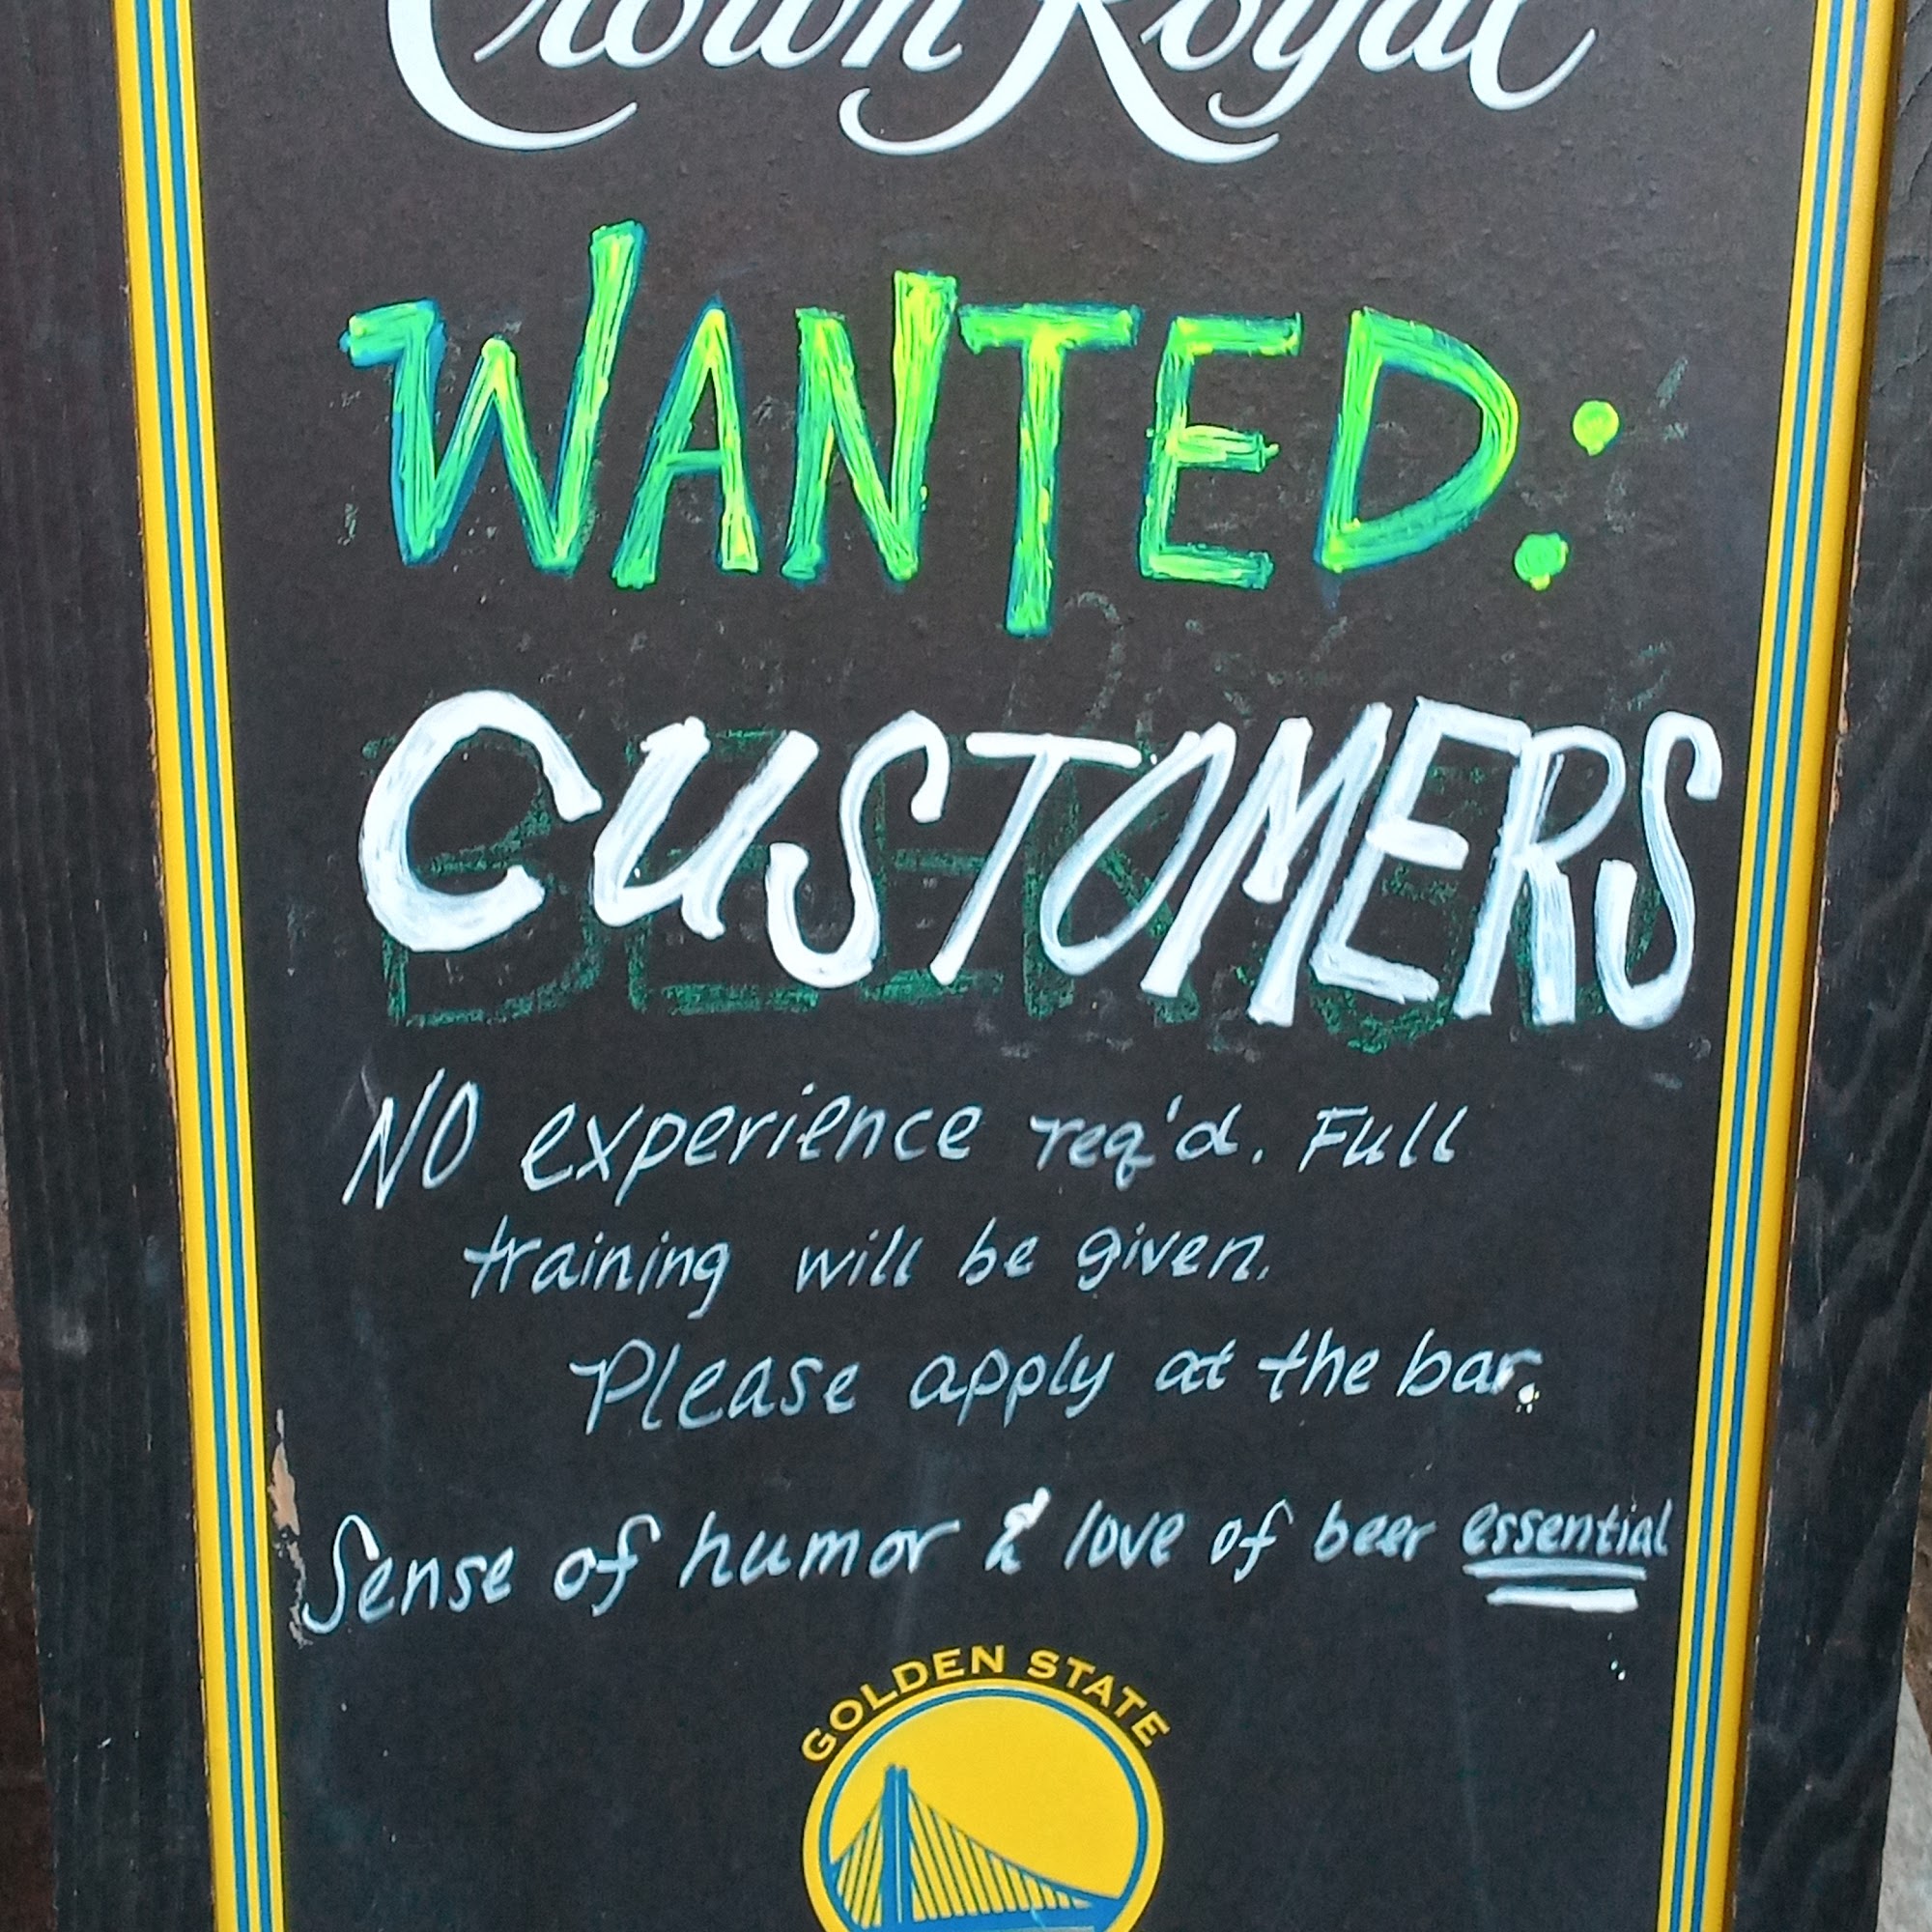 Crown Royal
WANTED:
CUSTOMERS
NO experience req'd. Full
training will be given.
Please apply at the bar.
Sense of humor & love of beer essential
GOLDEN STATE